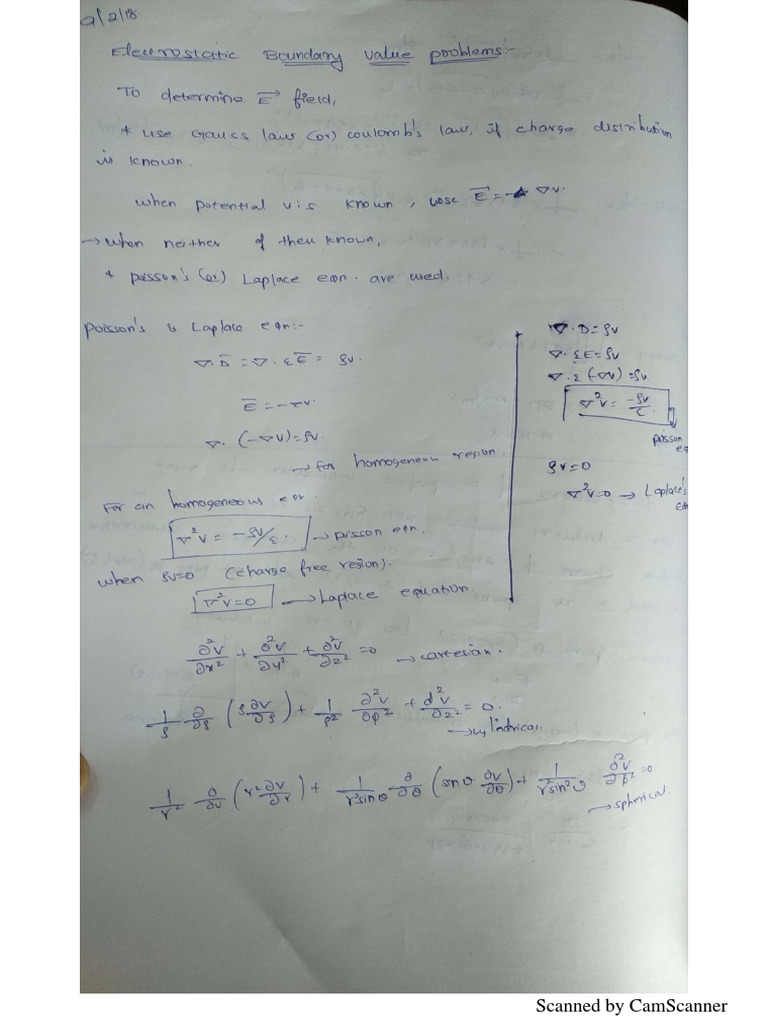 9/2/18
Electrostatic Boundary value problems:-
To determine E⃗ field,
* use Gauss law (or) coulomb's law, if charge distribution
is known.
when potential v is known, use E⃗ = - ∇v.
→ when neither of them known,
* poisson's (or) Laplace eqn. are used.
poisson's & Laplace eqn:-
∇.D̅ = ∇.εE̅ = ρv.
E̅ = -∇v.
∇.(-∇v) = ρv.
→ for homogeneous region.
for an homogeneous eqn
∇²v = -ρv/ε. → poisson eqn.
when ρv=0 (charge free region).
∇²v=0 → Laplace equation.
∇.D = ρv
∇.εE = ρv
∇.ε(-∇v) = ρv
∇²v = -ρv/ε.
poisson eq
ρv=0
∇²v=0 → Laplace's eqn
∂²v/∂x² + ∂²v/∂y² + ∂²v/∂z² = 0 → cartesian.
1/ρ ∂/∂ρ (ρ ∂v/∂ρ) + 1/ρ² ∂²v/∂φ² + d²v/∂z² = 0.
→ cylindrical.
1/r² ∂/∂r (r² ∂v/∂r) + 1/r²sinθ ∂/∂θ (sinθ ∂v/∂θ) + 1/r²sin²θ ∂²v/∂φ² = 0
→ spherical.
Scanned by CamScanner